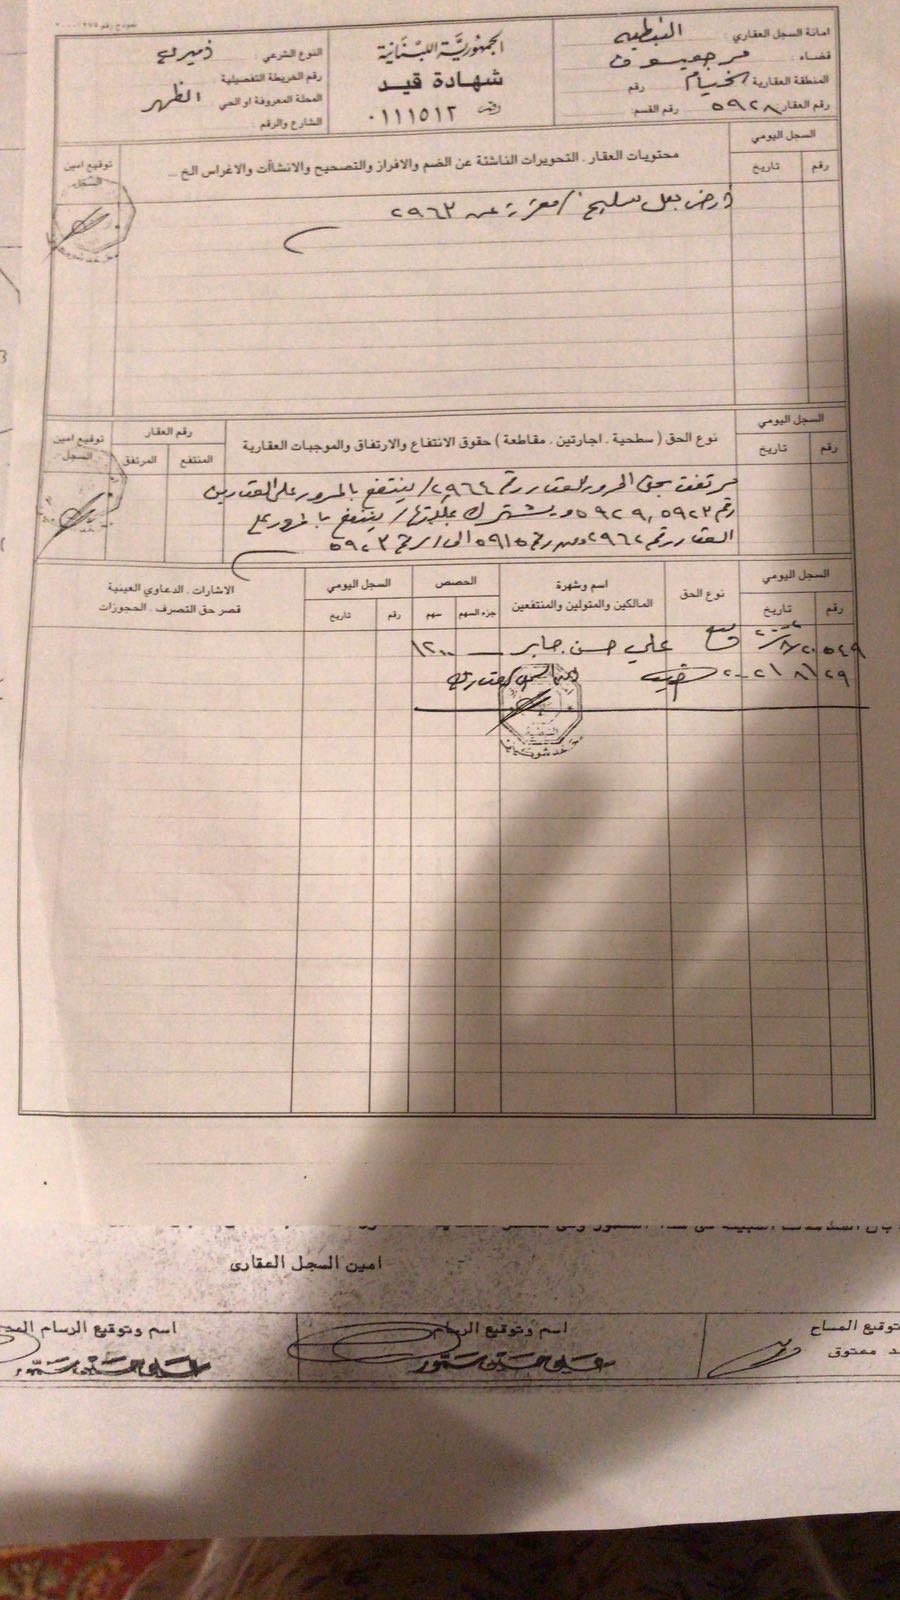 امانة السجل العقاري : النبطية
قضاء : مرجعيون
المنطقة العقارية : الخيام رقم
رقم العقار : ٥٩٢٨ رقم القسم :
الجمهورية اللبنانية
شهادة قيد
رقم ٠١١١٥١٢
النوع الشرعي :
رقم الخريطة التفصيلية :
المحلة المعروفة او الحي : الظهر
الشارع والرقم :
السجل اليومي
رقم تاريخ
محتويات العقار . التحويرات الناشئة عن الضم والافراز والتصحيح والانشاآت والاغراس الخ ...
توقيع امين السجل
ارض بعل سليخ / مفرزة عن ٢٩٦٣
السجل اليومي
رقم تاريخ
نوع الحق ( سطحية . اجارتين . مقاطعة ) حقوق الانتفاع والارتفاق والموجبات العقارية
رقم العقار
المنتفع المرتفق
توقيع امين السجل
مرتفق بحق المرور للعقار رقم ٢٩٦٤ / ينتفع بالمرور على العقارين
رقم ٥٩٢٣ و ٥٩٢٩ ويشترك بملكيتها / ينتفع بالمرور على
العقار رقم ٢٩٦٢ ومن رقم ٥٩١٥ الى رقم ٥٩٢٣
السجل اليومي
رقم تاريخ
نوع الحق
اسم وشهرة
المالكين والمتولين والمنتفعين
الحصص
جزء السهم سهم
السجل اليومي
رقم تاريخ
الاشارات . الدعاوي العينية
قصر حق التصرف . الحجوزات
علي حسن جابر
امين السجل العقاري
امين السجل العقاري
توقيع المساح
معتوق
اسم وتوقيع الرسام
اسم وتوقيع الرسام